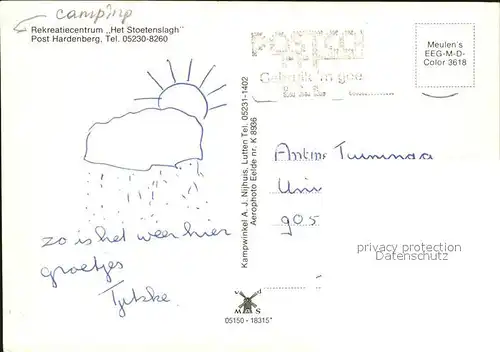 camping
Rekreatiecentrum „Het Stoetenslagh"
Post Hardenberg, Tel. 05230-8260
POSTCODE
Gebruik 'm goed
Meulen's
EEG-M-D-
Color 3618
Kampwinkel A. J. Nijhuis, Lutten Tel. 05231-1402
Aerophoto Eelde nr. K 8936
zo is het weer hier
groetjes
Tjitske
Uni
905
privacy protection
watermark
05150 - 18315*